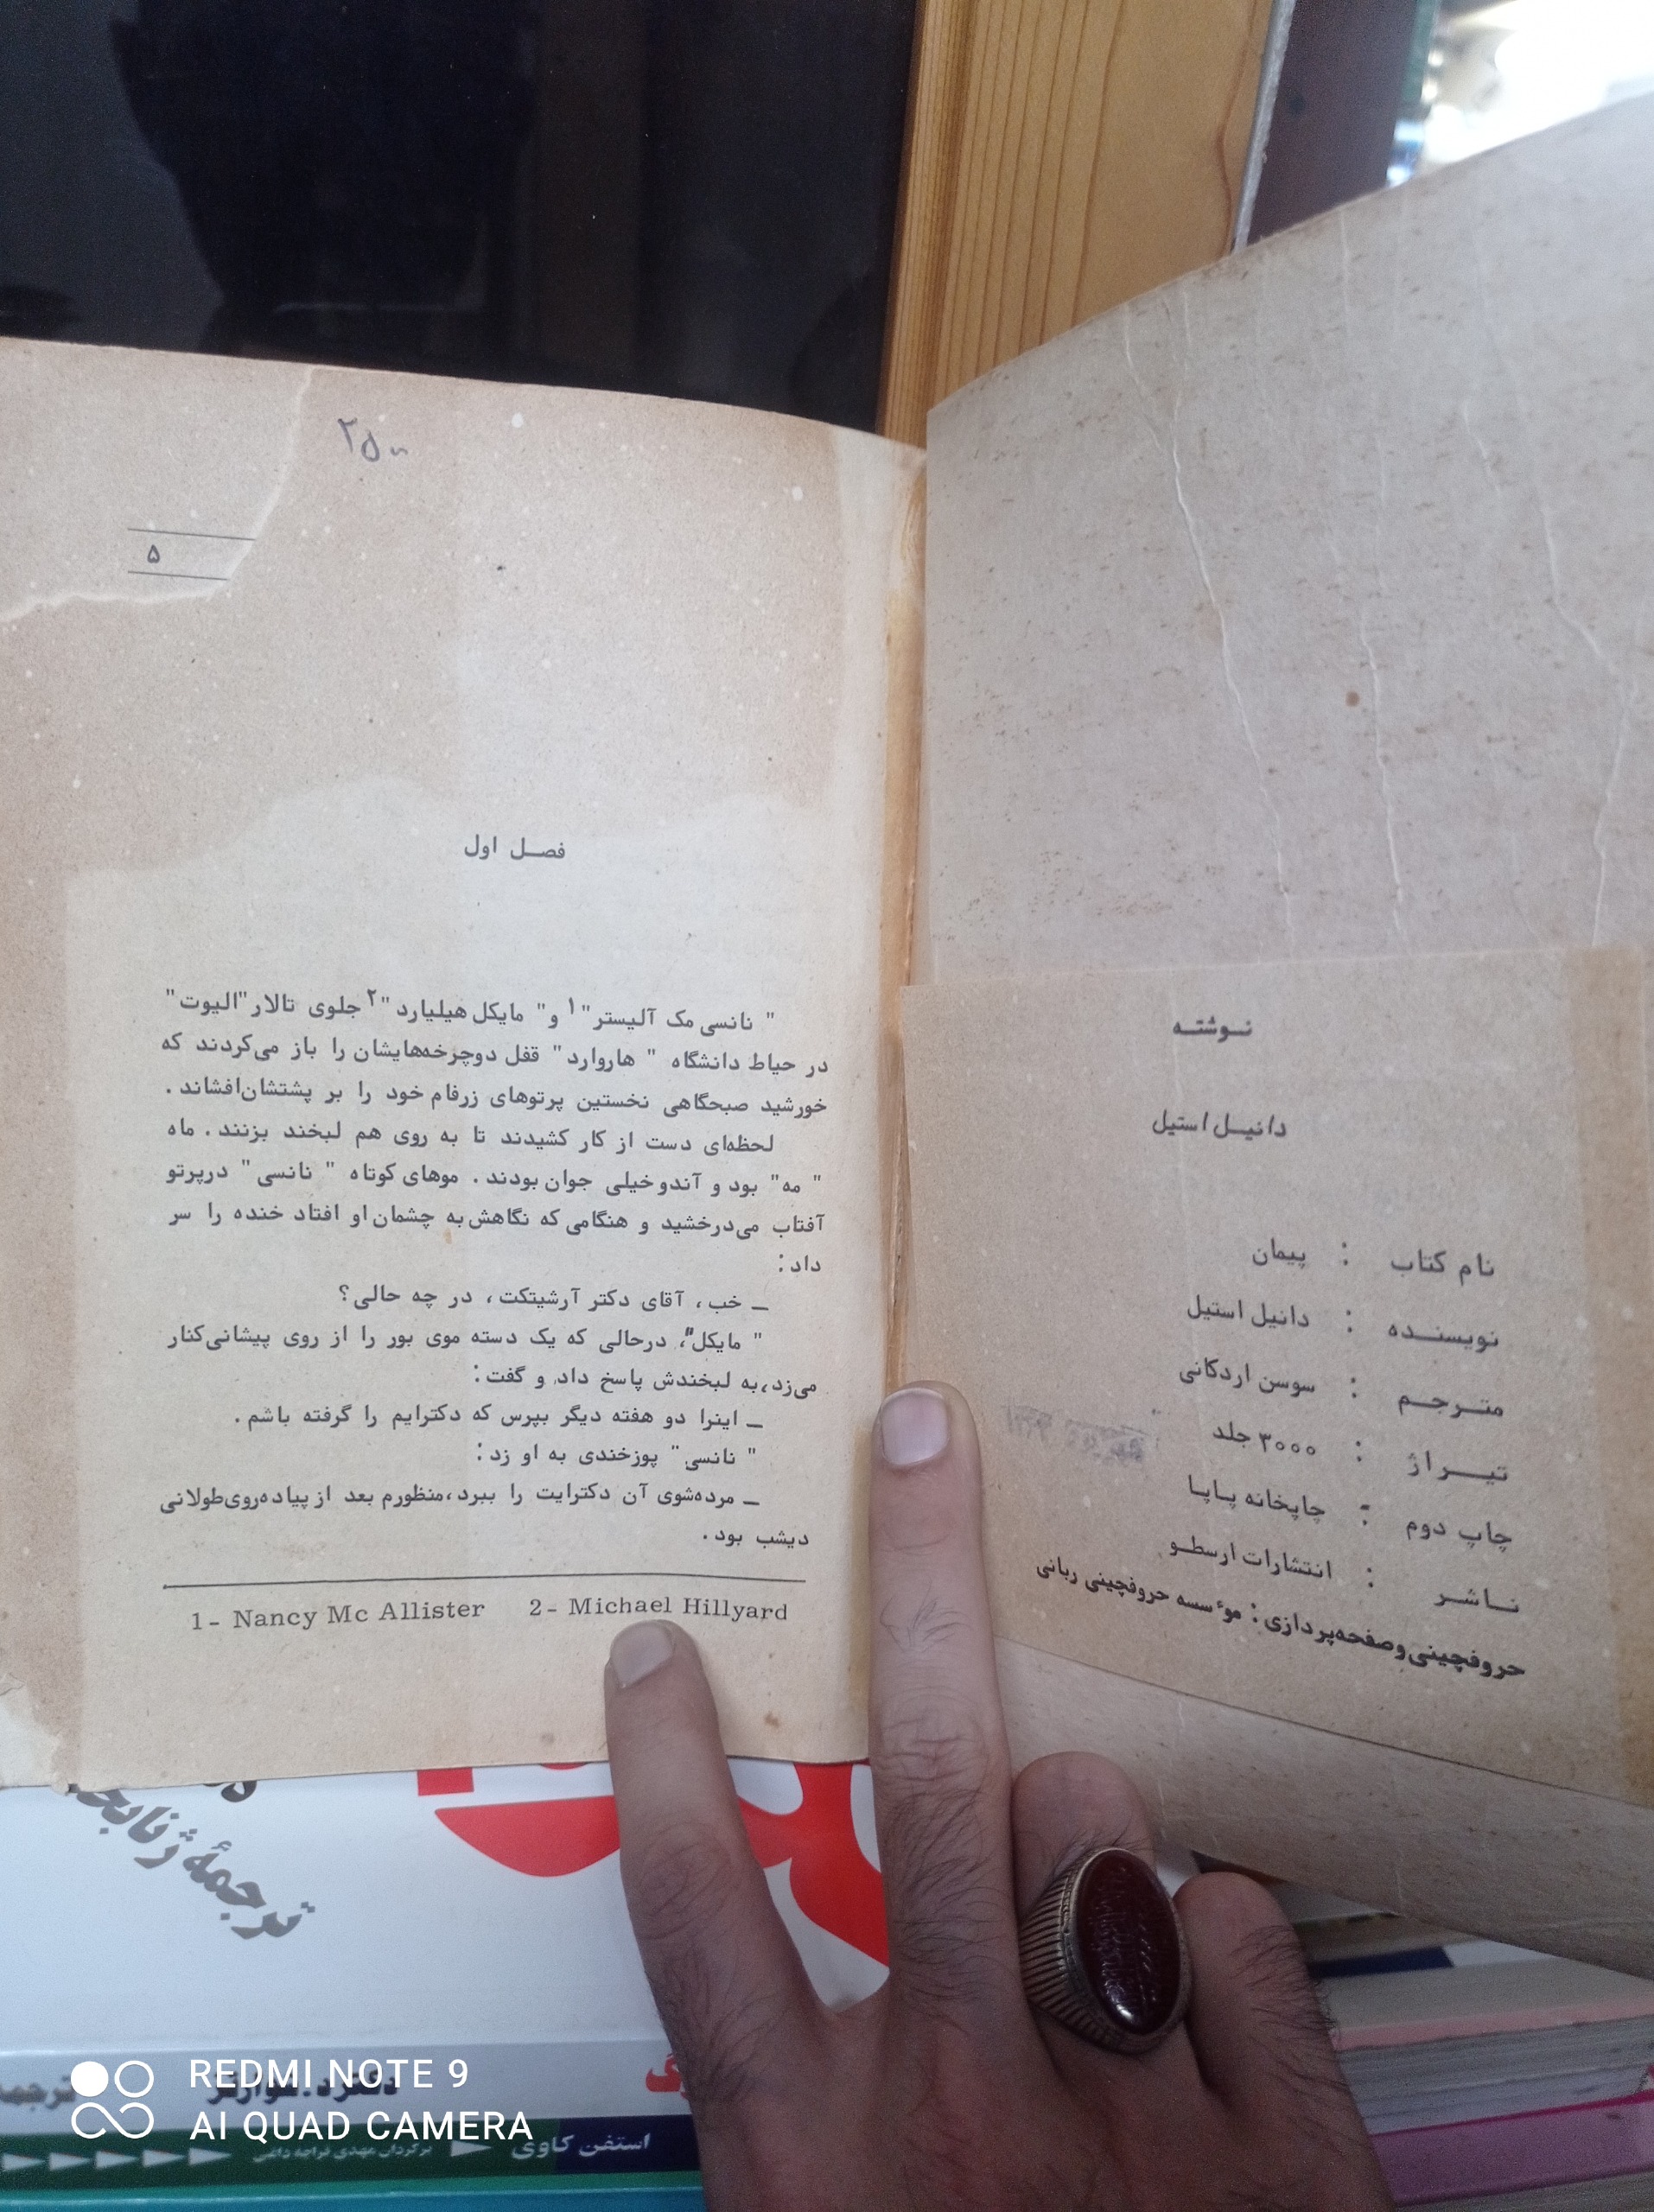 نوشته
دانیل استیل
نام کتاب : پیمان
نویسنده : دانیل استیل
مترجم : سوسن اردکانی
تیراژ : ۳۰۰۰ جلد
چاپ دوم : چاپخانه پاپا
ناشر : انتشارات ارسطو
حروفچینی وصفحه‌پردازی : موٴسسه حروفچینی ربانی
۲۵۰۰
۵
فصل اول
" نانسی مک آلیستر"۱ و" مایکل هیلیارد"۲ جلوی تالار"الیوت"
در حیاط دانشگاه " هاروارد" قفل دوچرخه‌هایشان را باز می‌کردند که
خورشید صبحگاهی نخستین پرتوهای زرفام خود را بر پشتشان‌افشاند .
لحظه‌ای دست از کار کشیدند تا به روی هم لبخند بزنند . ماه
" مه" بود و آندو خیلی جوان بودند . موهای کوتاه " نانسی" درپرتو
آفتاب می‌درخشید و هنگامی که نگاهش به چشمان او افتاد خنده را سر
داد :
ــ خب ، آقای دکتر آرشیتکت ، در چه حالی ؟
" مایکل"، درحالی که یک دسته موی بور را از روی پیشانی کنار
می‌زد،به لبخندش پاسخ داد و گفت :
ــ اینرا دو هفته دیگر بپرس که دکترایم را گرفته باشم .
" نانسی" پوزخندی به او زد :
ــ مرده‌شوی آن دکترایت را ببرد،منظورم بعد از پیاده‌روی‌طولانی
دیشب بود .
1- Nancy Mc Allister 2- Michael Hillyard
ترجمهٔ ژنا
ترجمه
استفن کاوی
برگردان مهدی قراچه داغی
REDMI NOTE 9
AI QUAD CAMERA